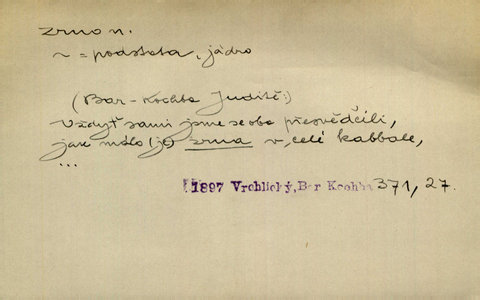 zrno n.
~ = podstata, jádro
(Bar-Kochba Juditě:)
Vždyť sami jsme se oba přesvědčili,
jak málo (je) zrna v celé kabbale,
...
1897 Vrchlický, Bar Kochba 371, 27.